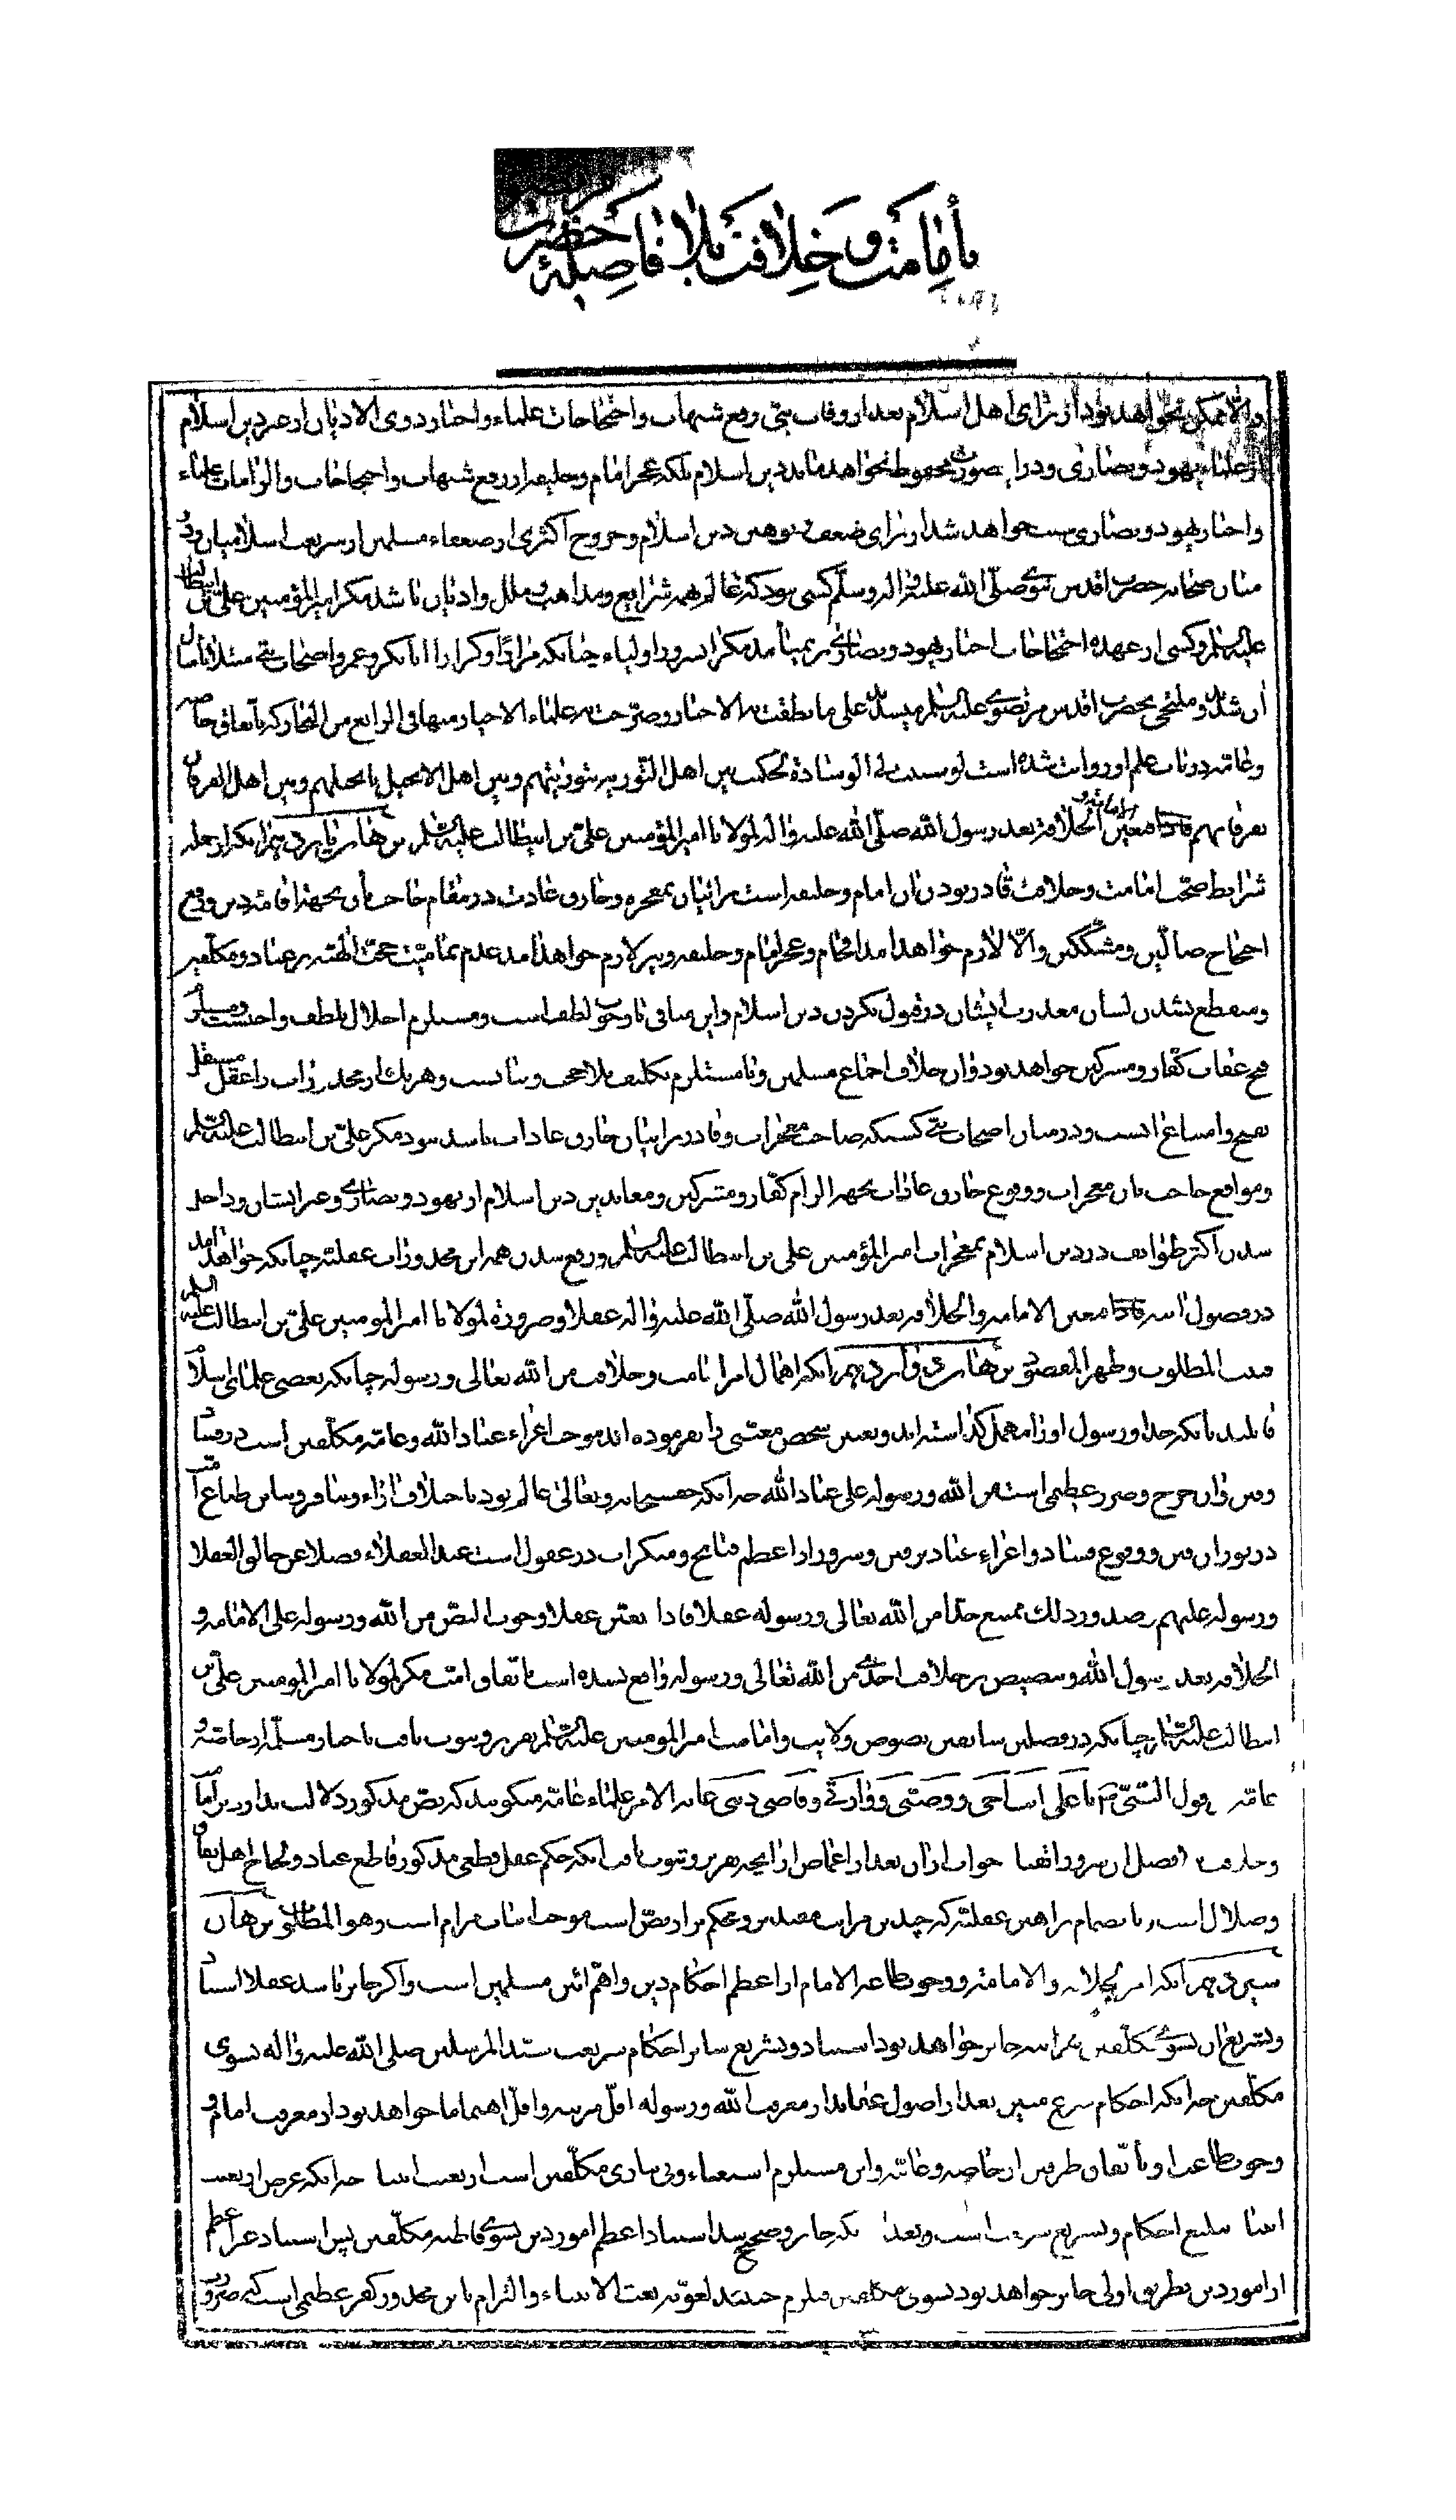 بأمامت و خلافت بلا فاصلۀ حضرت
والا ممکن نخواهد بود از برای اهل اسلام بعد از وفات نبی رفع شبهات و احتجاجات علماء و احبار ذوی الادیان از غیر دین اسلام
از علماء یهود و نصاری و در این صورت محفوظ نخواهد ماند دین اسلام بلکه عجز امام و خلیفه از رفع شبهات و احتجاجات و الزامات علماء
و احبار یهود و نصاری سبب خواهد شد از برای ضعف و توهین دین اسلام و خروج اکثری از ضعفاء مسلمین از شریعت اسلام و در
میان صحابه حضرت اقدس نبوی صلّی الله علیه و اله و سلّم کسی نبود که عالم بهمه شرایع و مذاهب و ملل و ادیان باشد مگر امیرالمؤمنین علیّ بن ابیطالب
علیه السلم و کسی از عهده احتجاجات احبار یهود و نصاری بر نمیامد مگر آن سرور اولیاء چنانکه مرارًا و کرارا ابابکر و عمر و اصحاب نبی مبتلا بامثال
آن شدند و ملتجی بحضرت اقدس مرتضوی علیه السلم میشدند علی ما نطقت به الاخبار و صرّحت به علماء الاخیار و منها فی الرابع من البحار که باتفاق خاصه
و عامه در باب علم او روایت شده است لو ثنیت لی الوسادة لحکمت بین اهل التوریة بتوریتهم و بین اهل الانجیل بانجیلهم و بین اهل الفرقان
بفرقانهم فاذا تعین الخلافة بعد رسول الله صلّی الله علیه و اله لمولانا امیر المؤمنین علیّ بن ابیطالب علیه السلم برهان یازدهم آنکه از جمله
شرایط صحّت امامت و خلافت قادر بودن آن امام و خلیفه است بر اتیان بمعجزه و خارق عادت در مقام حاجت بآن بجهة اقامه دین و رفع
احتجاج ضالّین و مشککین و الّا لازم خواهد امد افحام و عجز امام و خلیفه و نیز لازم خواهد امد عدم تمامیّت حجت الهیّه بر عباد و مکلّفین
و منقطع نشدن لسان معذرت ایشان در قبول نکردن دین اسلام و این منافی با وجوب لطف است و مستلزم اخلال بلطف واجبست و مستلزم
قبح عقاب کفّار و مشرکین خواهد بود و آن خلاف اجماع مسلمین و نا مستلزم تکلیف بلا حجت و بیانست و هر یک از محذورات را عقل مستقل
بقبح و امتناع انست و در میان اصحاب نبی کسیکه صاحب معجزات و قادر بر اتیان خارق عادات باشد نبود مگر علیّ بن ابیطالب علیه السلم
و مواقع حاجت بآن معجزات و وقوع خارق عادات بجهة الزام کفّار و مشرکین و معاندین دین اسلام از یهود و نصاری و غیر ایشان و داخل
شدن اکثر طوایف در دین اسلام بمعجزات امیر المؤمنین علی بن ابیطالب علیه السلم و رفع شدن همه این محذورات عقلیّه چنانکه خواهد آمد
در فصول آتیه فاذا تعین الامامة و الخلافة بعد رسول الله صلّی الله علیه و اله عقلا و ضرورة لمولانا امیر المومنین علیّ بن ابیطالب علیه السلم
فثبت المطلوب و ظهر المقصود برهان دوازدهم آنکه اهمال امر امامت و خلافت من الله تعالی و رسوله چنانکه بعضی علمای اسلام
قائلند بآنکه خدا و رسول او را مهمل گذاشته اند و تعیین شخص معیّنی را نفرموده اند موجب اغراء عباد الله و عامّه مکلّفین است در فساد
و فتن و آن حرج و ضرر عظیمی است من الله و رسوله علی عباد الله چرا که حقسبحانه و تعالی عالم بود باختلاف آراء و تنافر و تباین طبایع امت
در ثوران فتن و وقوع فساد و اغراء عباد در فتن و شرور از اعظم قبایح و منکرات در عقول است عند العقلاء فضلا عن خالق العقلا
و رسوله علیهم فصدور ذلک ممتنع جدّا من الله تعالی و رسوله عقلا فاذا تعیّن عقلا وجوب النصّ من الله و رسوله علی الامامة و
الخلافة بعد رسول الله و تنصیص بر خلافت احدی من الله تعالی و رسوله واقع نشده است باتّفاق امت مگر لمولانا امیر المومنین علیّ بن
ابیطالب علیه السلم چنانکه در فصلین سابقین نصوص ولایت و امامت امیر المومنین علیه السلم تقریر و ثبوت یافت باخبار مسلّمه از خاصّه و
عامّه بقول النبیّ ص یا علی انت اخی و وصیّی و وارثی و قاضی دینی غایة الامر علماء عامّه میگویند که نصّ مذکور دلالت ندارد بر امامت
و خلافت بلا فصل آن سرور اتقیا جواب از آن بعد از اغماض از آنچه تقریر و ثبوت یافت آنکه حکم عقل قطعی مذکور قاطع عناد و لجاج اهل نفاق
و ضلال است و بانضمام براهین عقلیّه که چندین مراتب مقدم بر و محکم تر از نصّ است موجب اثبات مرام است و هو المطلوب برهان
سیزدهم آنکه امر الخلافة و الامامة و وجوب طاعة الامام از اعظم احکام دین و اهمّ آئین مسلمین است و اگر جایز باشد عقلا استناد
و تشریع آن بسوی مکلّفین هر اینه جایز خواهد بود استناد و تشریع سایر احکام شریعت سیّد المرسلین صلی الله علیه و اله بسوی
مکلّفین چرا که احکام شرع مبین بعد از اصول عقاید از معرفت الله و رسوله اقلّ مرتبه و اقلّ اهتماما خواهد بود از معرفت امام و
وجوب طاعت او باتّفاق طرفین از خاصه و عامّه و این مستلزم استغناء و بی نیازی مکلّفین است از بعث انبیا چرا که غرض از بعثت
انبیا تبلیغ احکام و تشریع شریعت است و بعد آنکه جایز و صحیح شد استناد اعظم امور دین بسوی قاطبه مکلّفین پس استناد غیر اعظم
از امور دین بطریق اولی جایز خواهد بود بسوی مکلفین فیلزم حینئذ لغویّة بعث الانبیاء و التزام باین محذور کفر عظیمی است که ضرورت